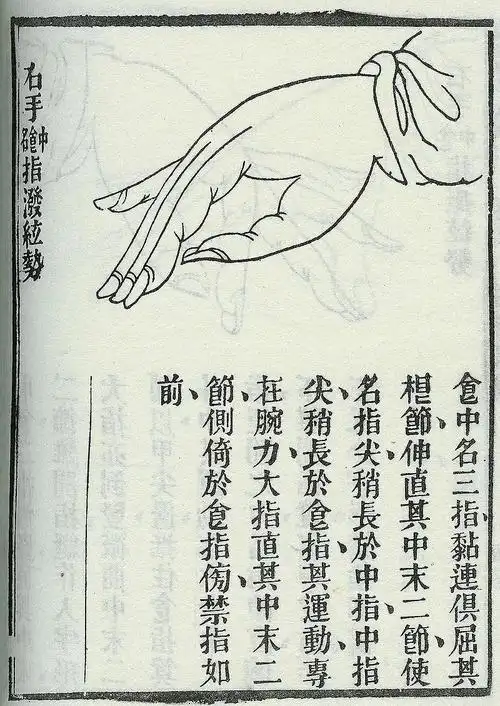 右手食中名指潑絃勢
食中名三指、黏連俱屈其
根節、伸直其中末二節、使
名指尖、稍長於中指、中指
尖、稍長於食指、其運動、專
在腕力、大指直其中末二
節、側倚於食指傍、禁指如
前、